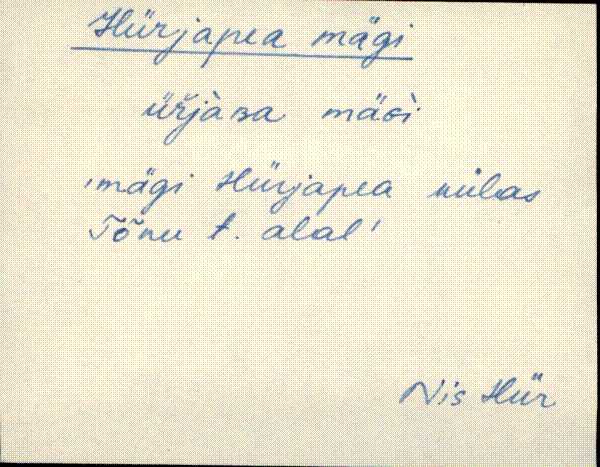 Hürjapea mägi
üřjàʙa mäɢì
'mägi Hürjapea külas
Tõnu t. alal'
Nis Hür